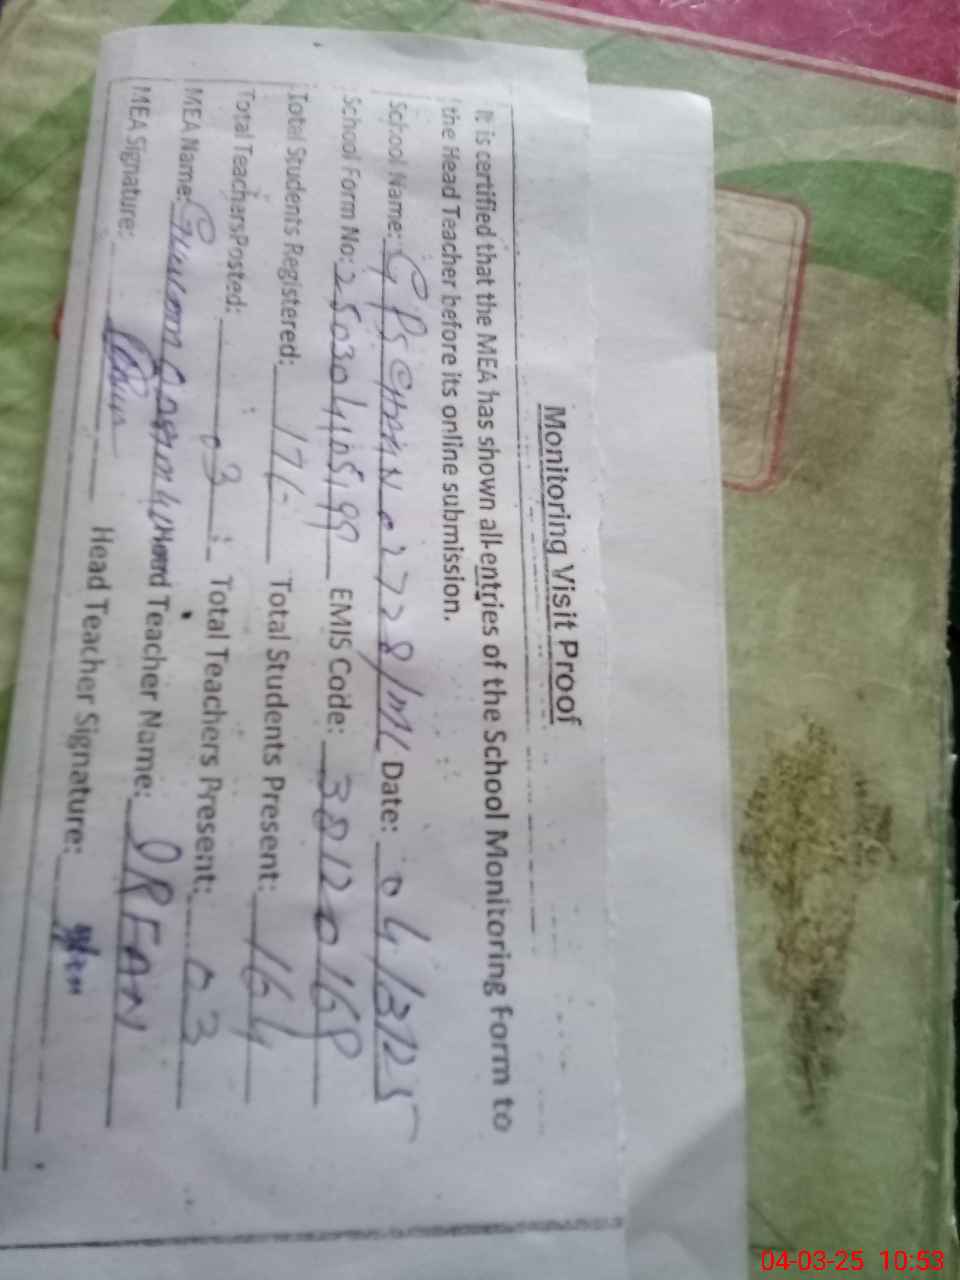 Monitoring Visit Proof
It is certified that the MEA has shown all entries of the School Monitoring Form to
the Head Teacher before its online submission.
School Name: GPS 27728/ML Date: 04/3/25
School Form No: EMIS Code: 38120168
Total Students Registered: 171- Total Students Present: 164
Total Teachers Posted: 03 Total Teachers Present: 03
MEA Name: Head Teacher Name: IRFAN
MEA Signature: Head Teacher Signature:
04-03-25 10:53